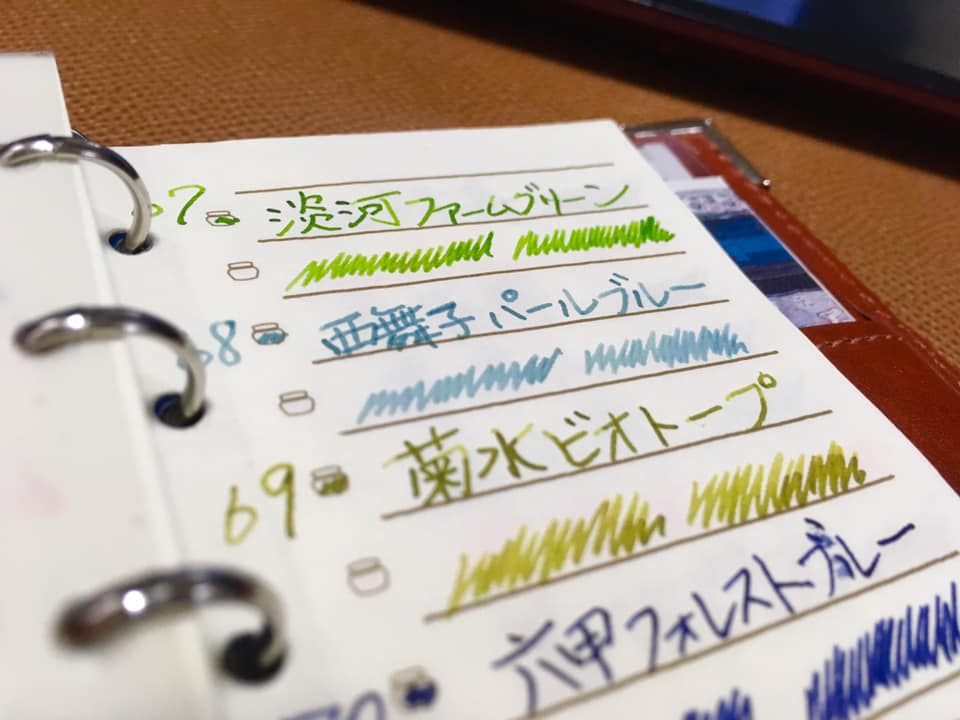 67 淡河ファームグリーン
68 西舞子パールブルー
69 菊水ビオトープ
70 六甲フォレストブルー